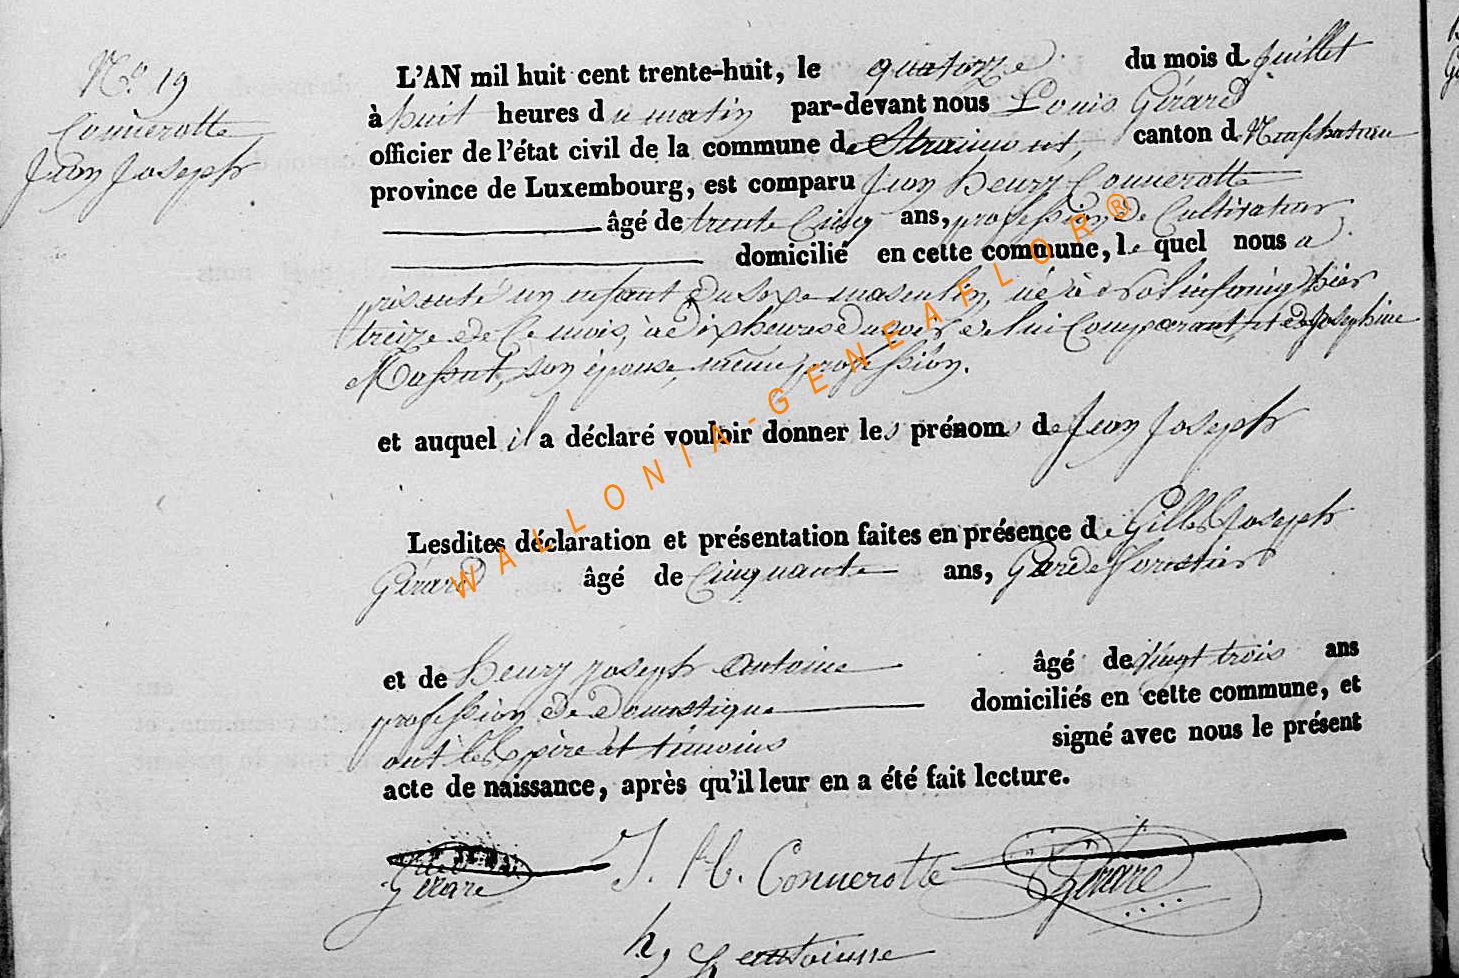 N.° 19
Connerotte
Jean Joseph
L'AN mil huit cent trente-huit, le quatorze du mois d Juillet
à huit heures du matin par-devant nous Louis Gérard
officier de l'état civil de la commune de Straimont, canton d Neufchateau
province de Luxembourg, est comparu Jean henry Connerotte
âgé de trente Cinq ans, profession de Cultivateur,
domicilié en cette commune, le quel nous a
présenté un enfant du sexe masculin, né à hier
treize de Ce mois, à dix heures du soir de lui Comparant, et de Josephine
son épouse, même profession.
et auquel il a déclaré vouloir donner les prénoms de Jean Joseph
Lesdites déclaration et présentation faites en présence de Gilles Joseph
Gérard âgé de Cinquante ans, Garde forestier
et de henry joseph antoine âgé de vingt trois ans
profession de domestique domiciliés en cette commune, et
ont les père et témoins signé avec nous le présent
acte de naissance, après qu'il leur en a été fait lecture.
Gérard J. H. Connerotte Gérard
WALLONIA-GENEAFLOR®